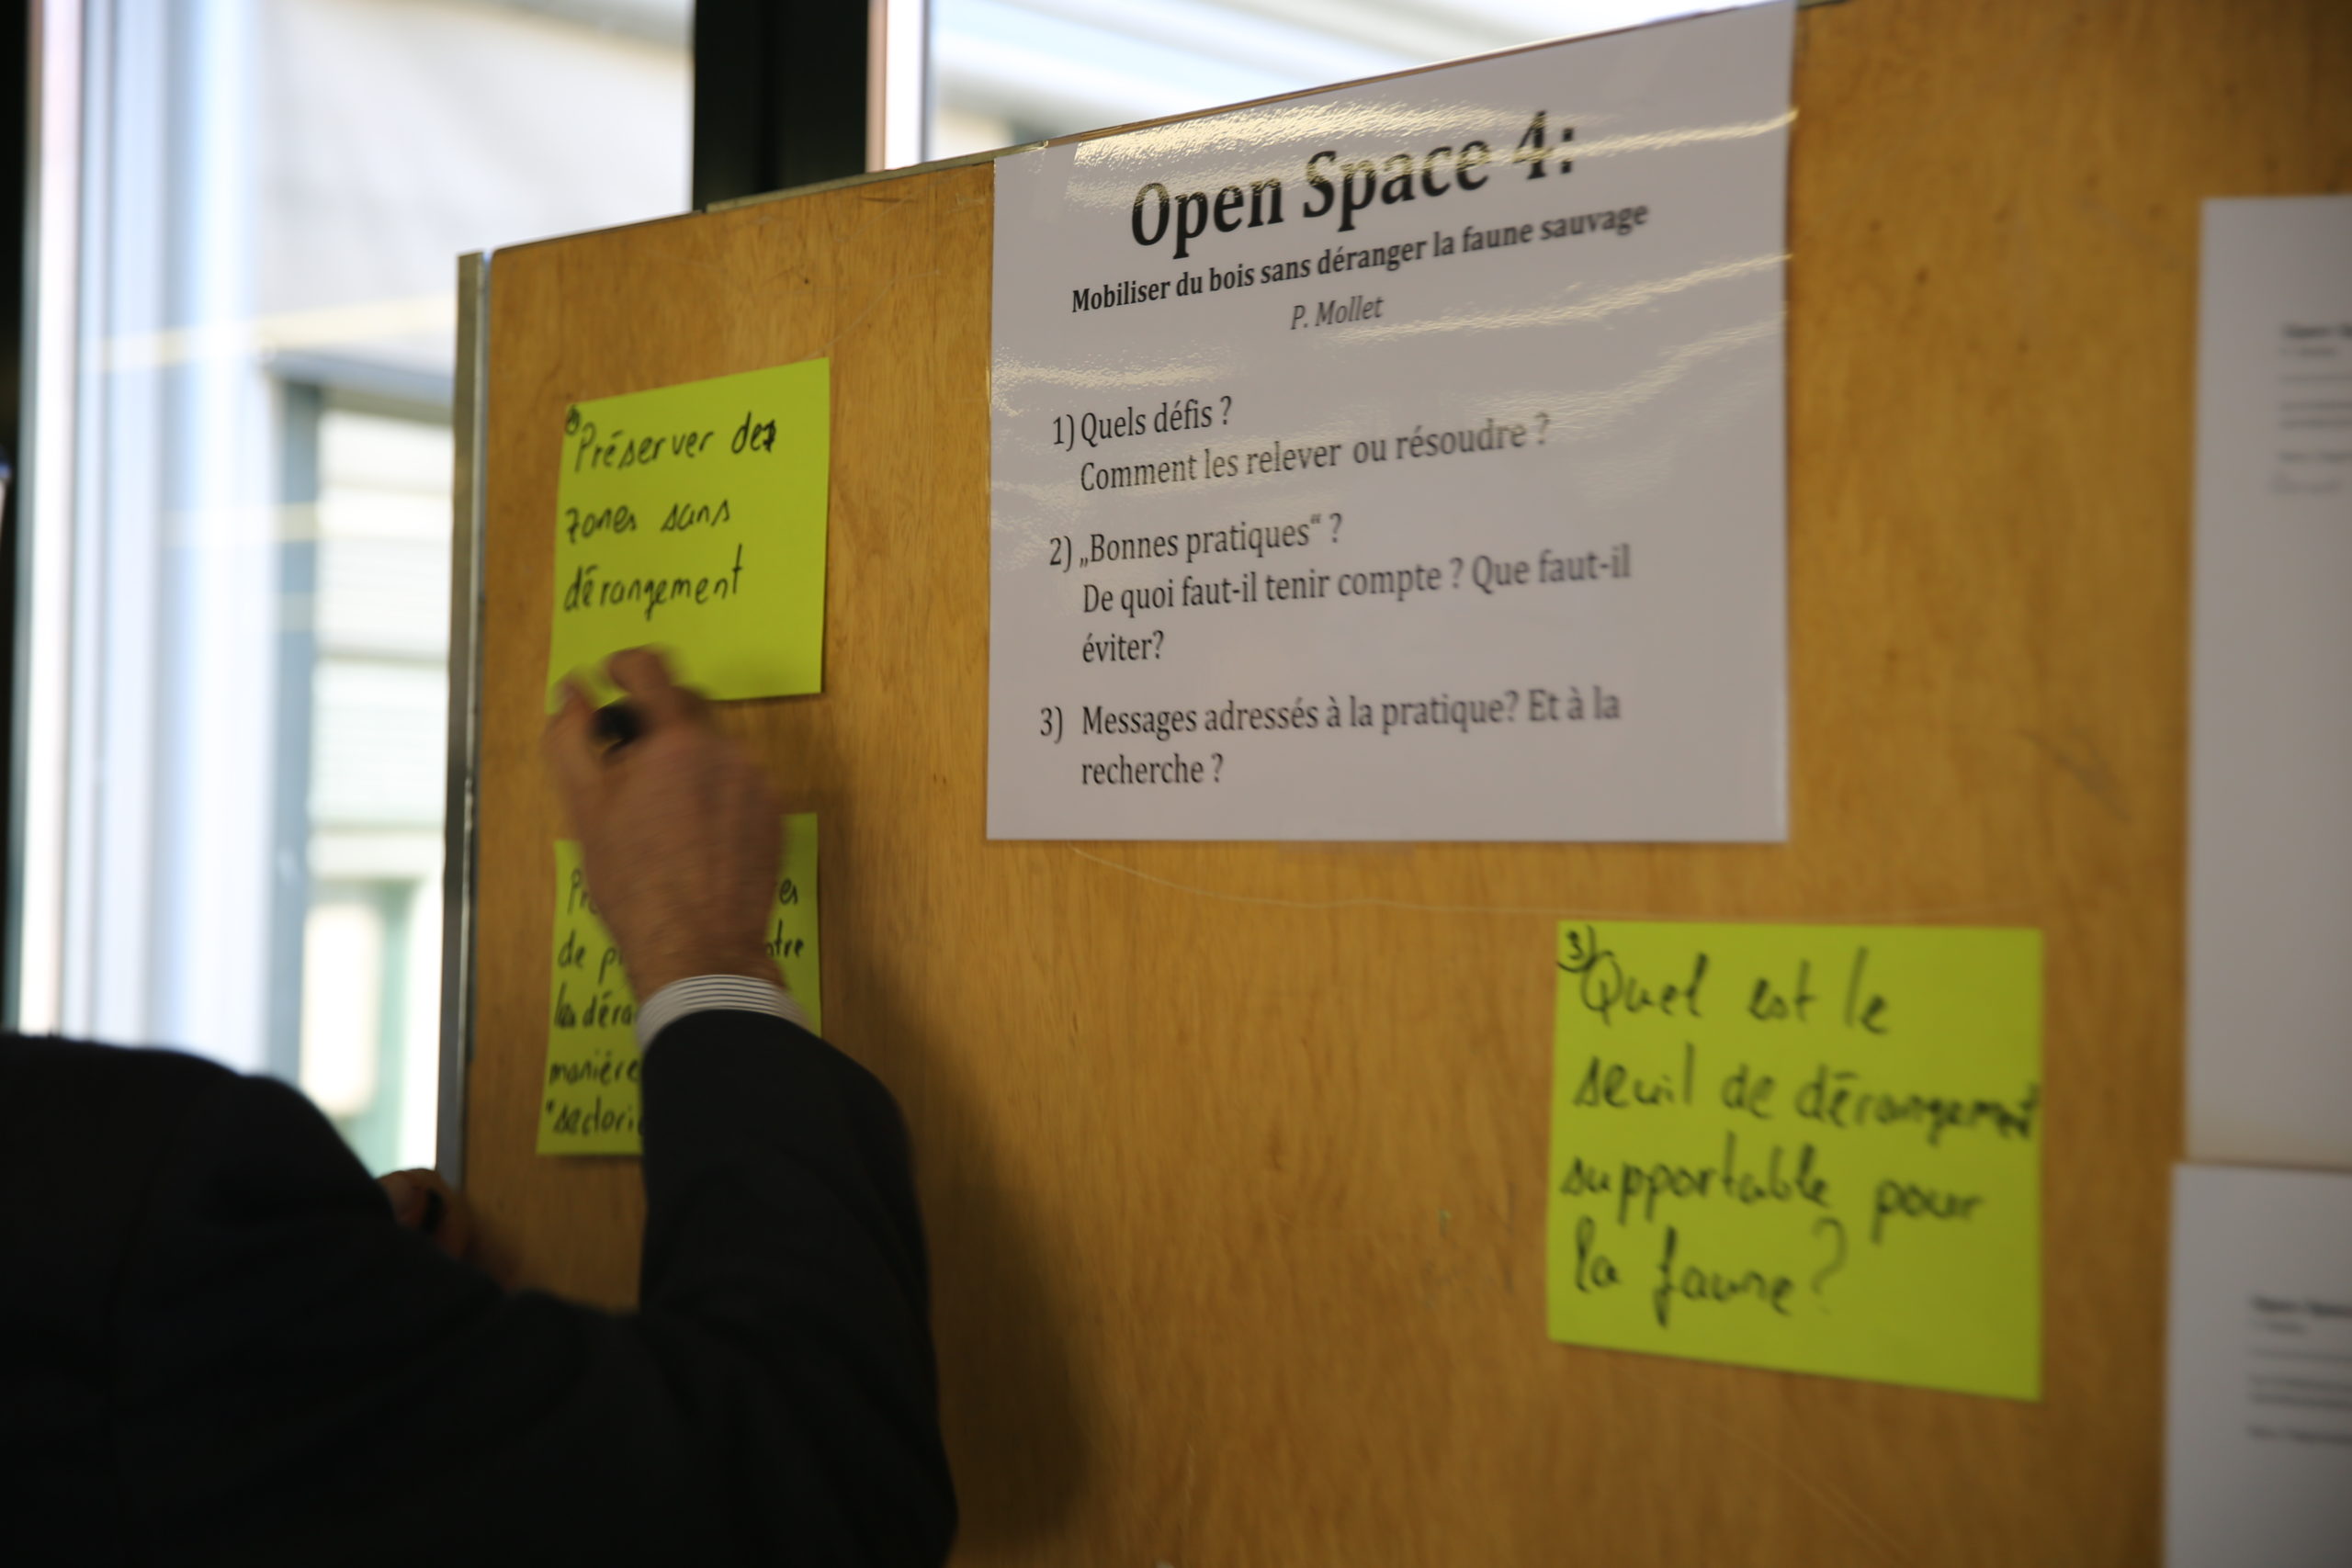 Open Space 4:
Mobiliser du bois sans déranger la faune sauvage
P. Mollet
1) Quels défis ?
Comment les relever ou résoudre ?
2) „Bonnes pratiques“ ?
De quoi faut-il tenir compte ? Que faut-il
éviter?
3) Messages adressés à la pratique? Et à la
recherche ?
Préserver des
zones sans
dérangement
de
manière
3) Quel est le
seuil de dérangement
supportable pour
la faune?